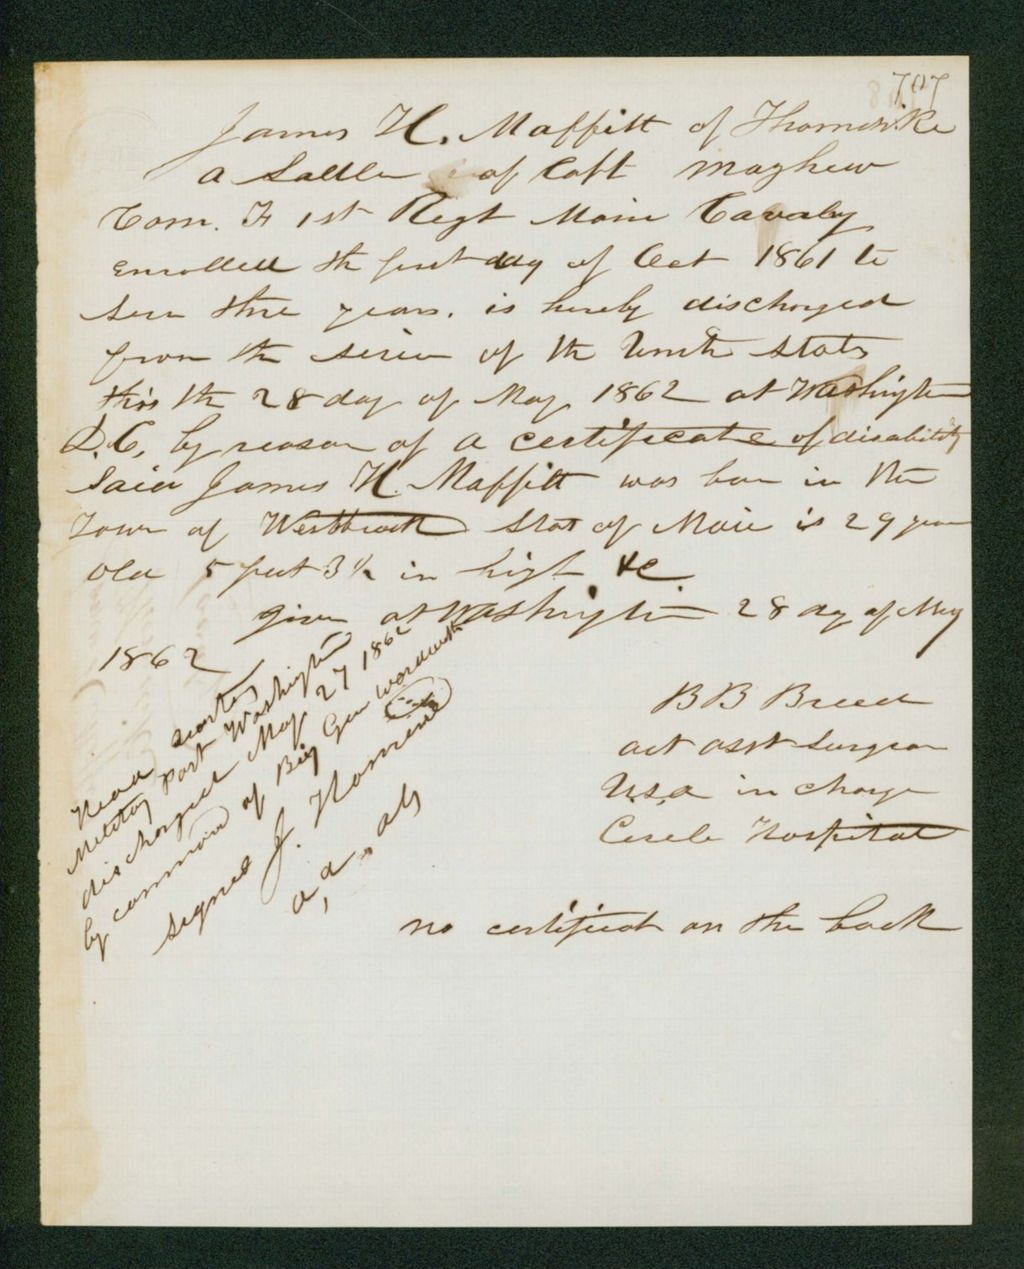 707
James H. Maffitt of Thorndike
a Sadler of Capt Mayhew
Com. F 1st Regt Maine Cavalry
enrolled the first day of Oct 1861 to
serve three years. is hereby discharged
from the service of the United States
this the 28 day of May 1862 at Washington
D.C. by reason of a certificate of disability
Said James H. Maffitt was born in the
Town of Westbrook State of Maine is 29 years
old 5 feet 3 1/2 in high &c
given at Washington 28 day of May
1862
Head quarters
Military Post Washington
discharged May 27 1862
by command of Brig Gen Wadsworth
signed J.
a, d
B B Breed
act asst Surgeon
U.S.A in charge
Hospital
no certificat on the back